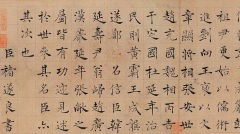 祖尹更始以儒術
進劉向王褒以文
章顯將相張安世
趙充國魏相丙吉
于定國杜延年治
民則黃霸王成龔
遂鄭召信臣韓
延壽尹翁歸趙廣
漢嚴延年張敞之
屬皆有功迹見述
於世參其名臣亦
其次也
臣褚遂良書